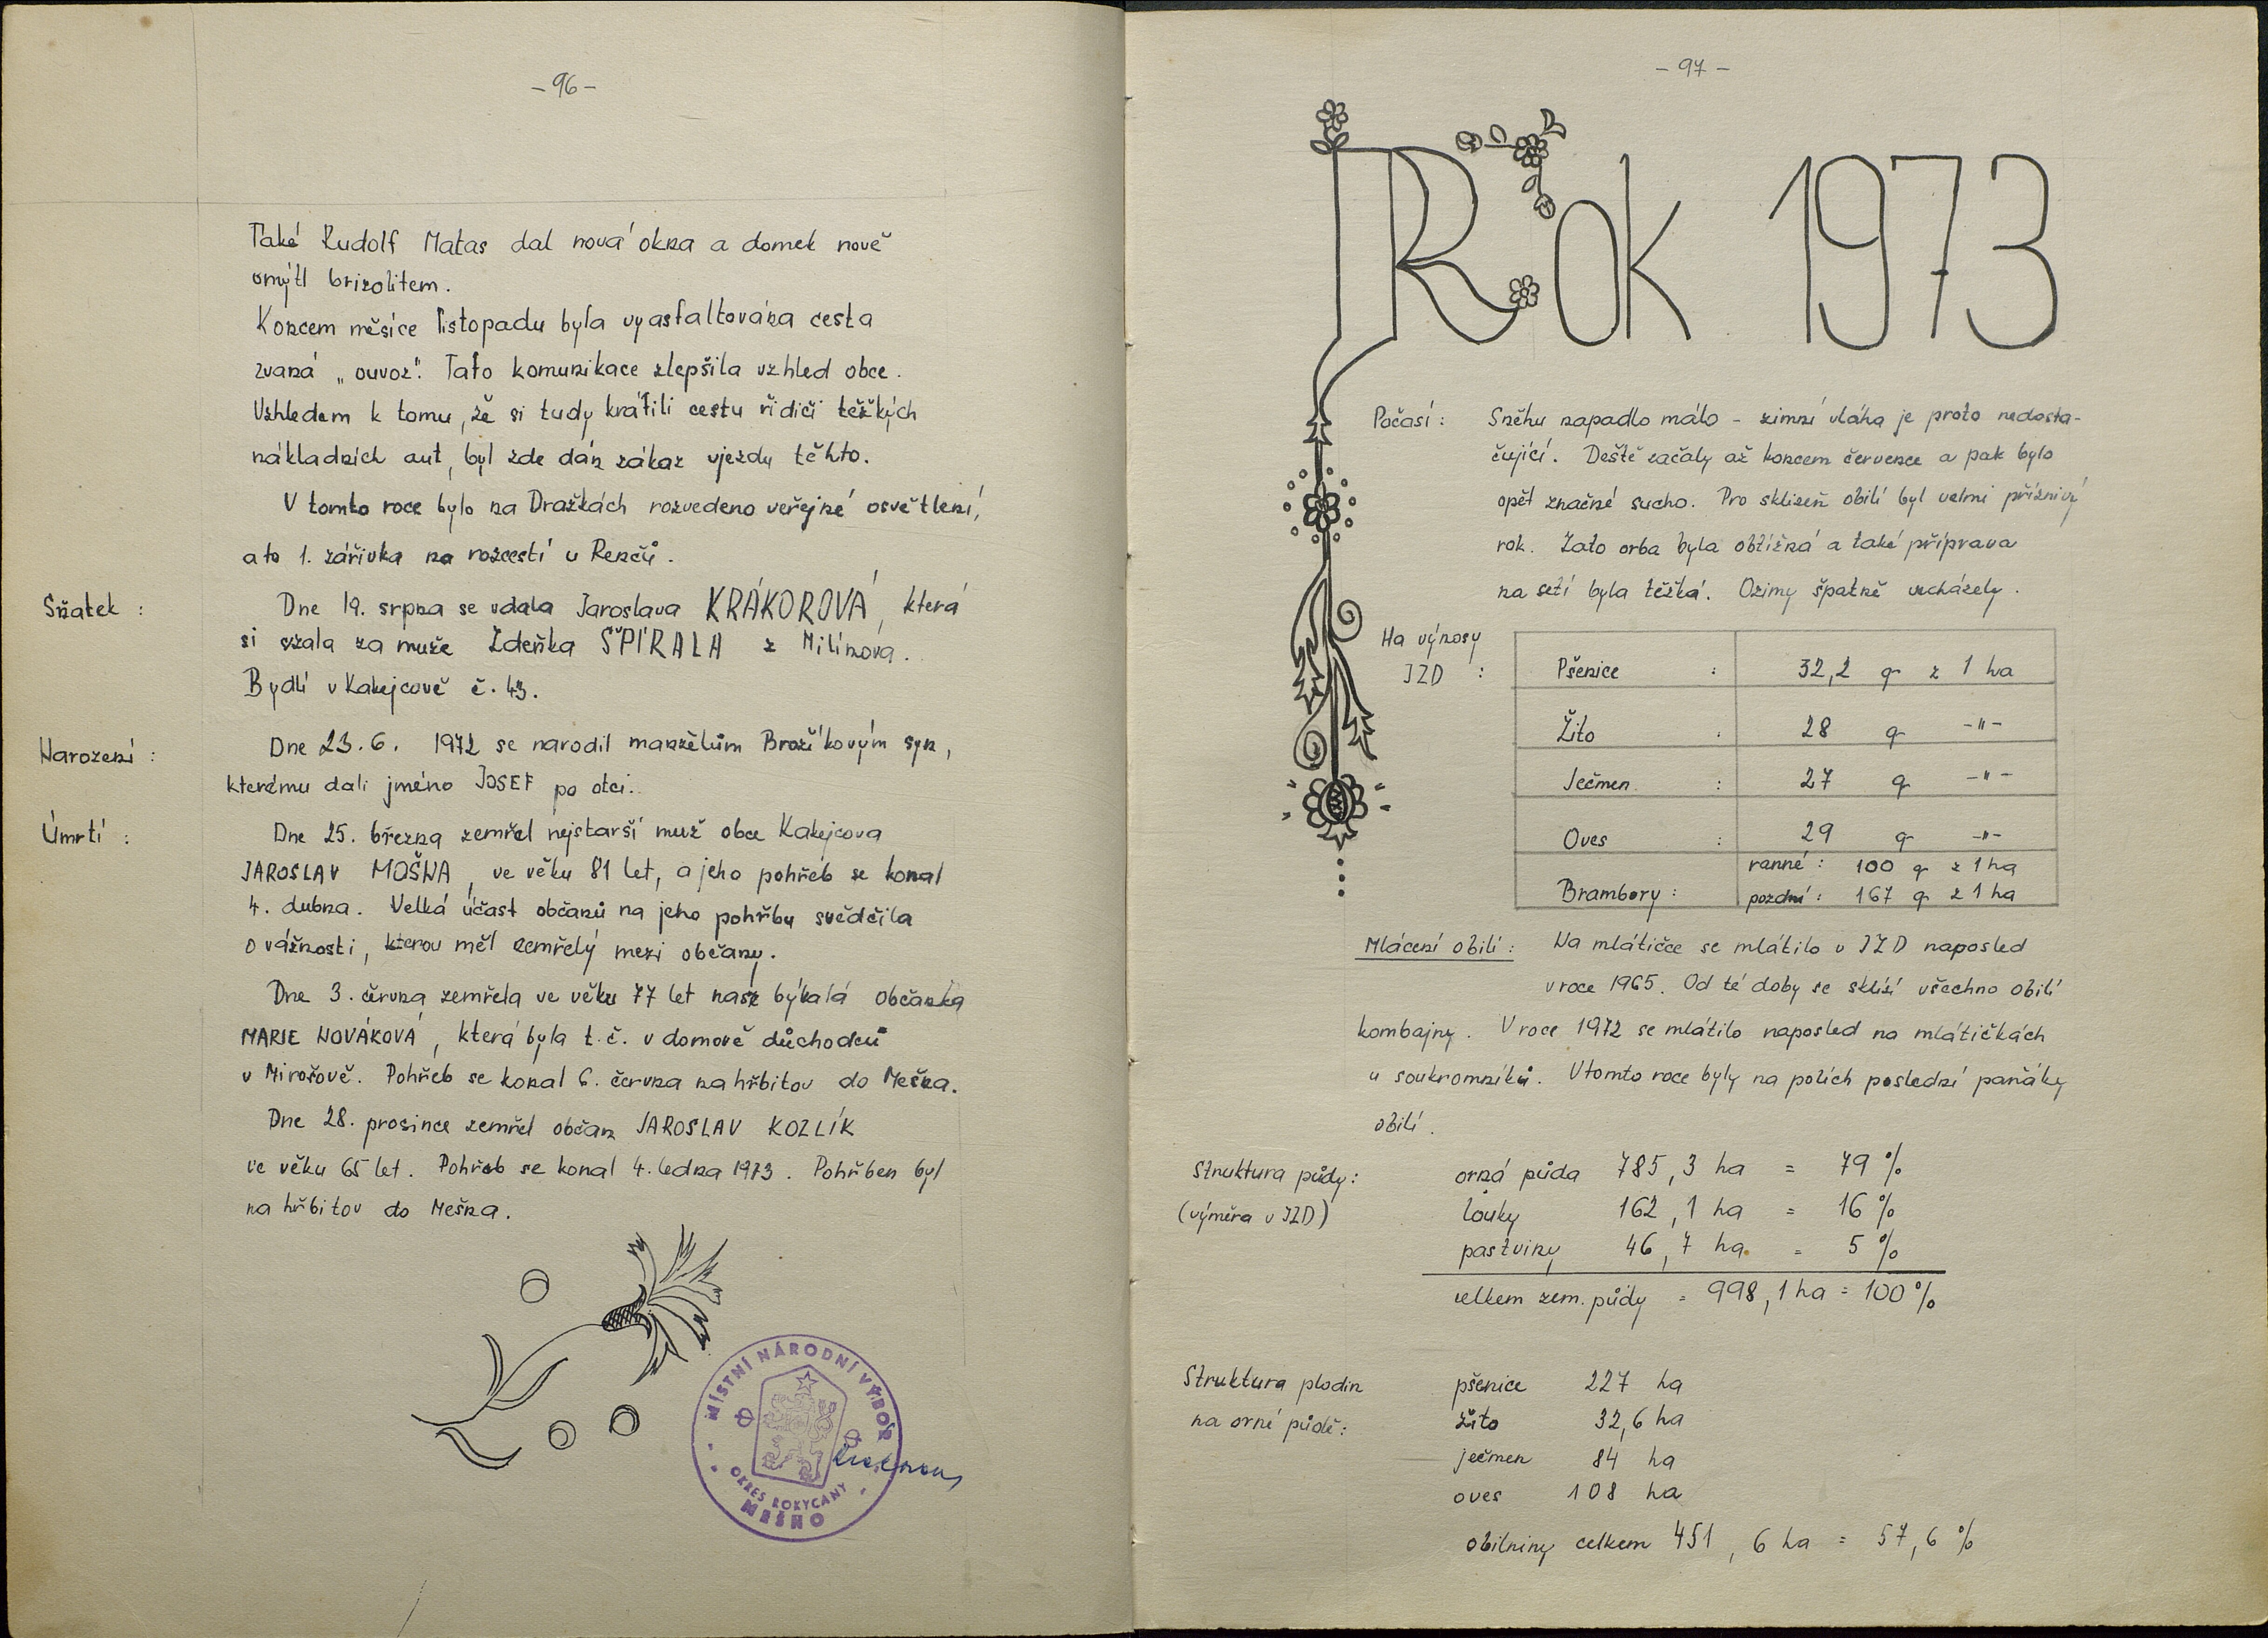 - 96 -
Také Rudolf Matas dal nová okna a domek nově
omýtl brizolitem.
Koncem měsíce listopadu byla vyasfaltována cesta
zvaná „ouvoz". Tato komunikace zlepšila vzhled obce.
Vzhledem k tomu, že si tudy krátili cestu řidiči těžkých
nákladních aut, byl zde dán zákaz vjezdu těchto.
V tomto roce bylo na Dražkách rozvedeno veřejné osvětlení,
a to 1. zářivka na rozcestí u Renčů.
Sňatek : Dne 19. srpna se vdala Jaroslava KRÁKOROVÁ, která
si vzala za muže Zdeňka ŠPIRALA z Milínova.
Bydlí v Kakejcově č. 43.
Narození : Dne 23. 6. 1972 se narodil manželům Brožíkovým syn,
kterému dali jméno JOSEF po otci.
Úmrtí : Dne 25. března zemřel nejstarší muž obce Kakejcova
JAROSLAV MOŠNA, ve věku 81 let, a jeho pohřeb se konal
4. dubna. Velká účast občanů na jeho pohřbu svědčila
o vážnosti, kterou měl zemřelý mezi občany.
Dne 3. června zemřela ve věku 77 let naše bývalá občanka
MARIE NOVÁKOVÁ, která byla t. č. v domově důchodců
v Mirošově. Pohřeb se konal 6. června na hřbitov do Mešna.
Dne 28. prosince zemřel občan JAROSLAV KOZLÍK
ve věku 65 let. Pohřeb se konal 4. ledna 1973. Pohřben byl
na hřbitov do Mešna.
MÍSTNÍ NÁRODNÍ VÝBOR
OKRES ROKYCANY
MEŠNO
- 97 -
ROK 1973
Počasí : Sněhu napadlo málo - zimní vláha je proto nedosta-
čující. Deště začaly až koncem července a pak bylo
opět značné sucho. Pro sklizeň obilí byl velmi příznivý
rok. Zato orba byla obtížná a také příprava
na setí byla těžká. Ozimy špatně vcházely.
Ha výnosy
JZD :
Pšenice : 32,2 q z 1 ha
Žito : 28 q -"-
Ječmen : 27 q -"-
Oves : 29 q -"-
Brambory : ranné : 100 q z 1 ha
pozdní : 167 q z 1 ha
Mlácení obilí : Na mlátičce se mlátilo v JZD naposled
v roce 1965. Od té doby se sklízí všechno obilí
kombajny. V roce 1972 se mlátilo naposled na mlátičkách
u soukromníků. V tomto roce byly na polích poslední panáky
obilí.
Struktura půdy : orná půda 785,3 ha = 79 %
(výměra v JZD) louky 162,1 ha = 16 %
pastviny 46,7 ha = 5 %
celkem zem. půdy = 998,1 ha = 100 %
Struktura plodin pšenice 227 ha
na orné půdě : žito 32,6 ha
ječmen 84 ha
oves 108 ha
obilniny celkem 451,6 ha = 57,6 %